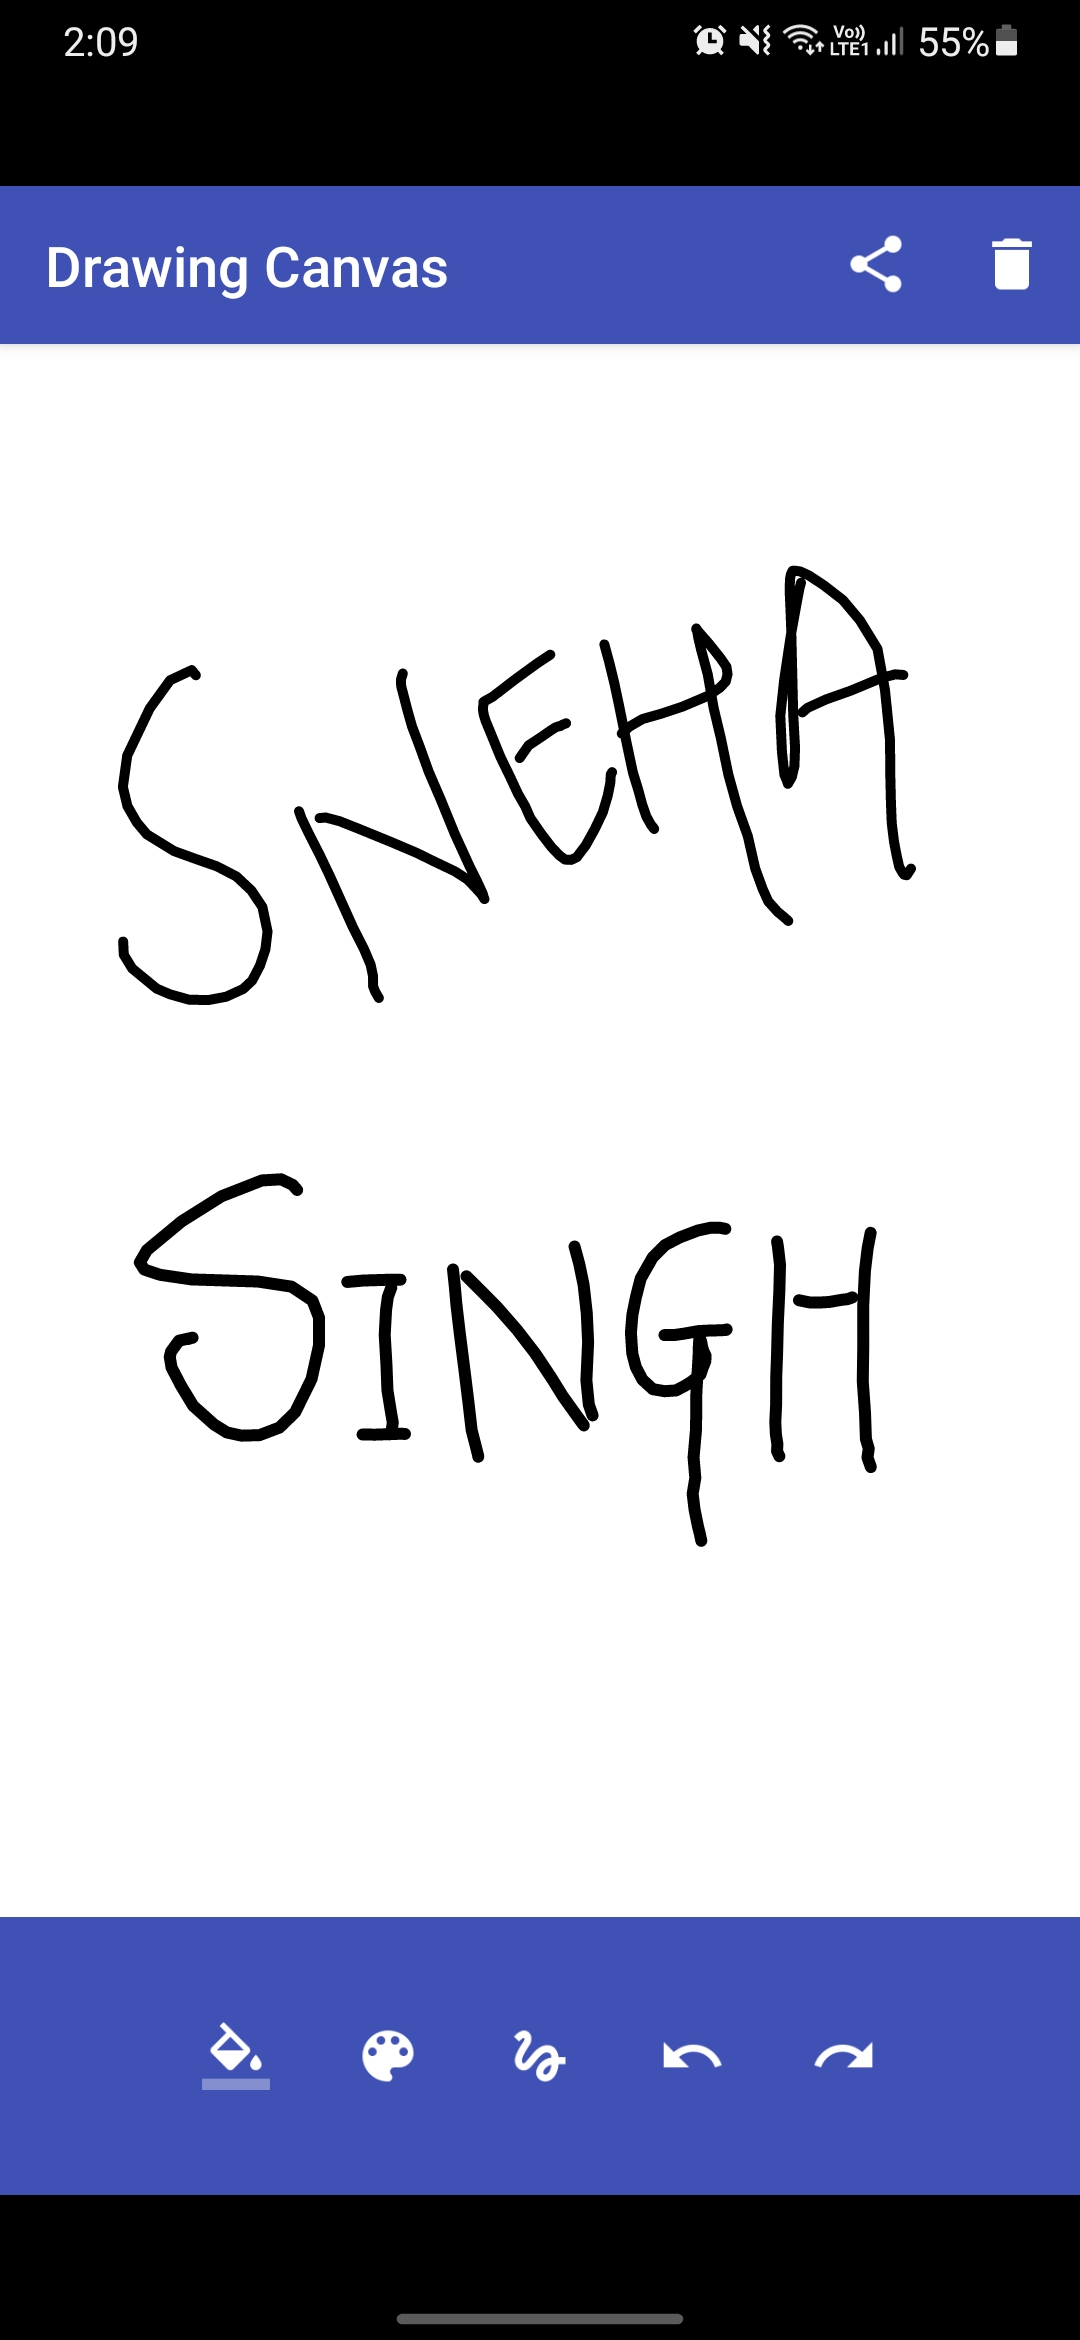 2:09 Vo)) LTE1 55%
Drawing Canvas
SNEHA
SINGH